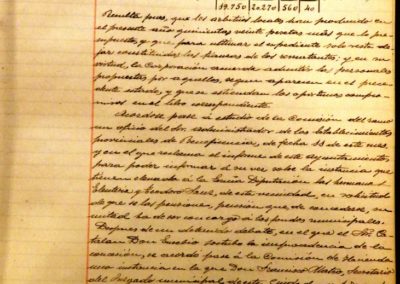 19.750 20.270 560 40
Resulta pues, que los arbitrios locales han producido en
el presente año quinientas veinte pesetas más que lo pre-
supuesto, y que, para ultimar el expediente solo resta de-
jar constituidas las fianzas de los rematantes, y en su
virtud, la Corporación acuerda admitir las personales
propuestas por aquellos, según aparecen en el prece-
dente estado, y que se extiendan los oportunos compro-
misos en el libro correspondiente.
Acordose pase á estudio de la Comisión del ramo
un oficio del Sr. Administrador de los Establecimientos
provinciales de Beneficencia, de fecha 23 de este mes,
y en el que reclama el informe de este Ayuntamiento,
para poder informar á su vez sobre la instancia que
tienen elevada á la Excma Diputación las hermanas
Eleuteria y de esta vecindad, en solicitud
de que se les pensione, pensión que de concederse, su
mitad ha de ser con cargo á los fondos municipales.
Después de un detenido debate, en el que el Sr. Ca-
talan Don Eusebio sostuvo la improcedencia de la
concesión, se acordó pase á la Comisión de Hacienda
una instancia en la que Don Francisco Mateo, Secretario
del Juzgado municipal de esta Ciudad